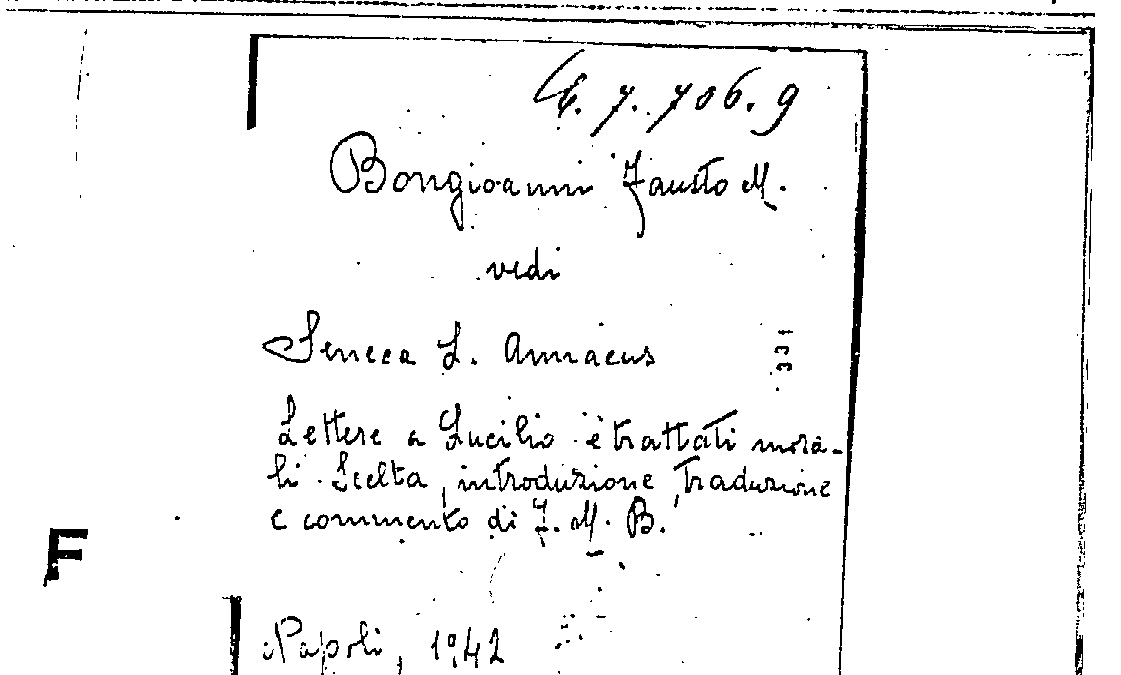 6. 7. 706. 9
Bongioanni Fausto M.
vedi
Seneca L. Annaeus
331
Lettere a Lucilio e trattati mora-
li. Scelta, introduzione, traduzione
e commento di F. M. B.
F
Napoli, 1942